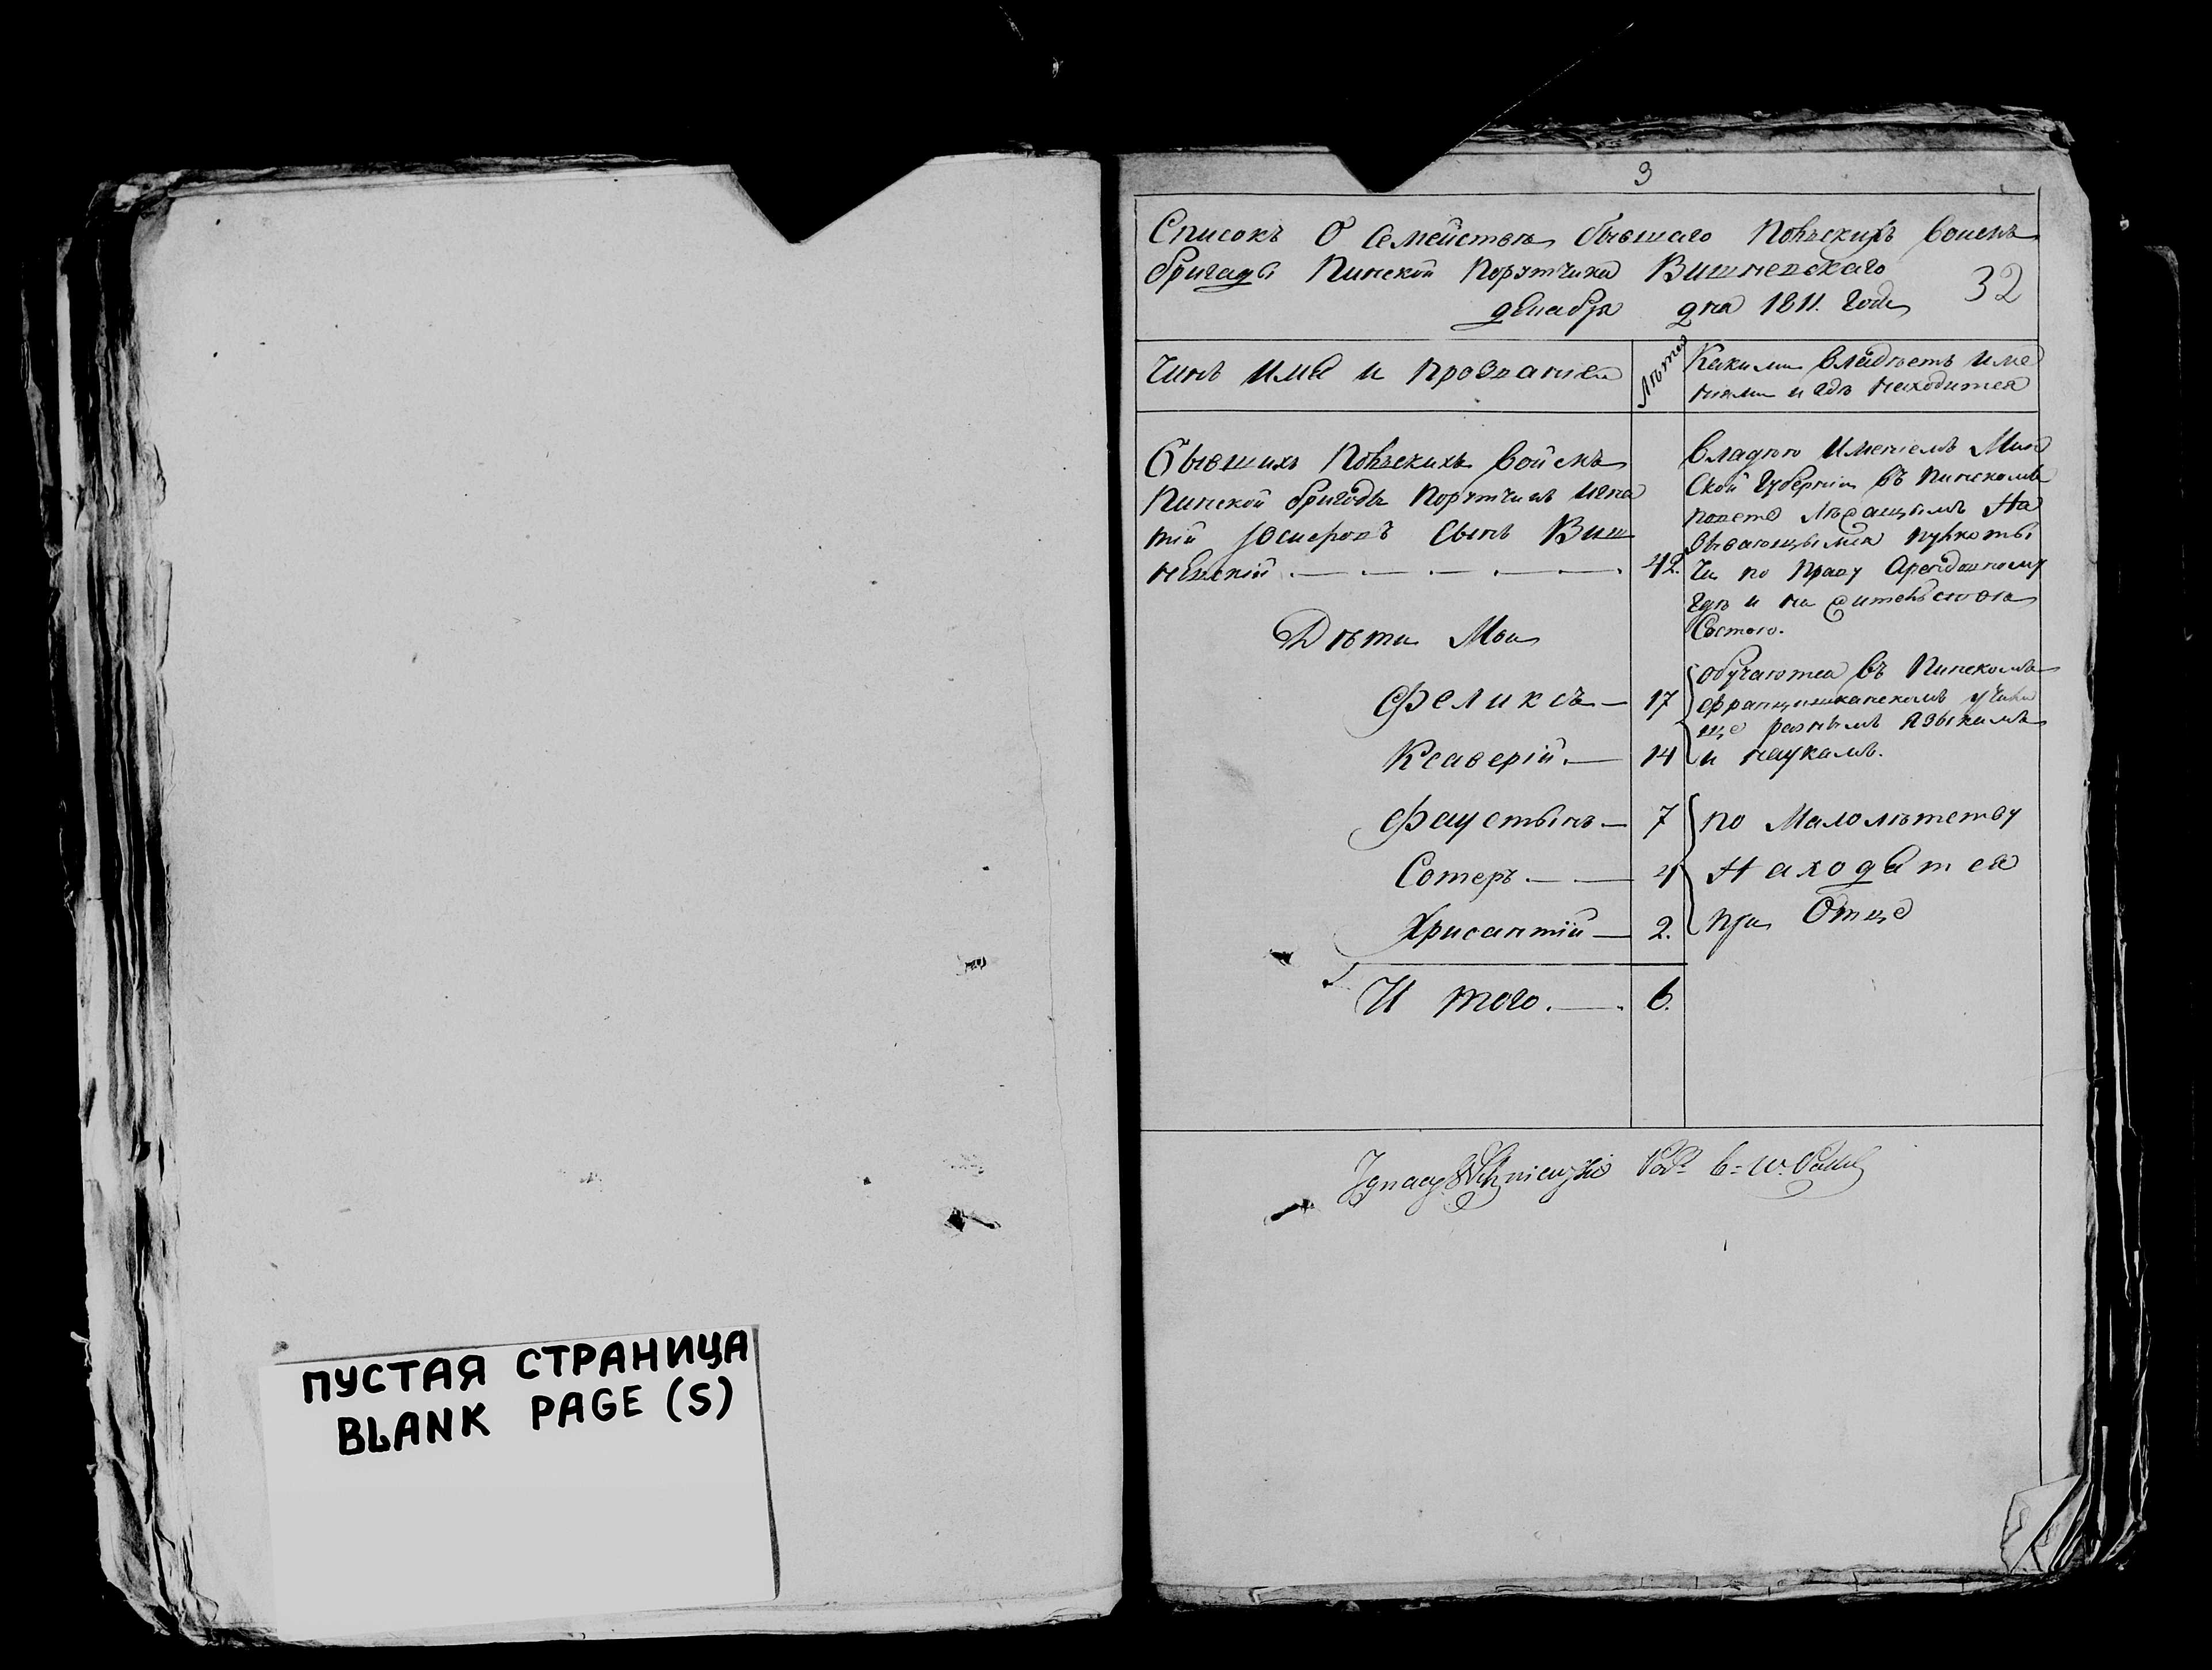 ПУСТАЯ СТРАНИЦА
BLANK PAGE (S)
3
Списокъ О Семействѣ бывшаго Польскихъ Воискъ
бригады Пинской Порутчика Вишневскаго
32
декабря дня 1811. Года
Чинъ Имя и Прозваніе
Лѣта
Какими владѣетъ Име
ніями и гдѣ находится
Бывшихъ Польскихъ Войскъ
Пинской бригады Порутчикъ Игна
тій Юсифовъ Сынъ Виш
невскій 42.
Владѣю Имѣніемъ Мин
Ской Губерніи Въ Пинскомъ
повете лѣжащымъ На
зывающымся
по Праву Арендовному
гдѣ и на жительствѣ
Состою.
Дѣти Мои
Феликсъ 17
Ксаверій 14
обучаются Въ Пинскомъ
францишканскомъ учили
ще разнымъ языкамъ
и наукамъ.
Фаустынъ 7
Сотеръ 4
Хрисантій 2.
по Малолѣтству
Находятся
при Отце
И того. 6.
Ignacy Wiszniewski